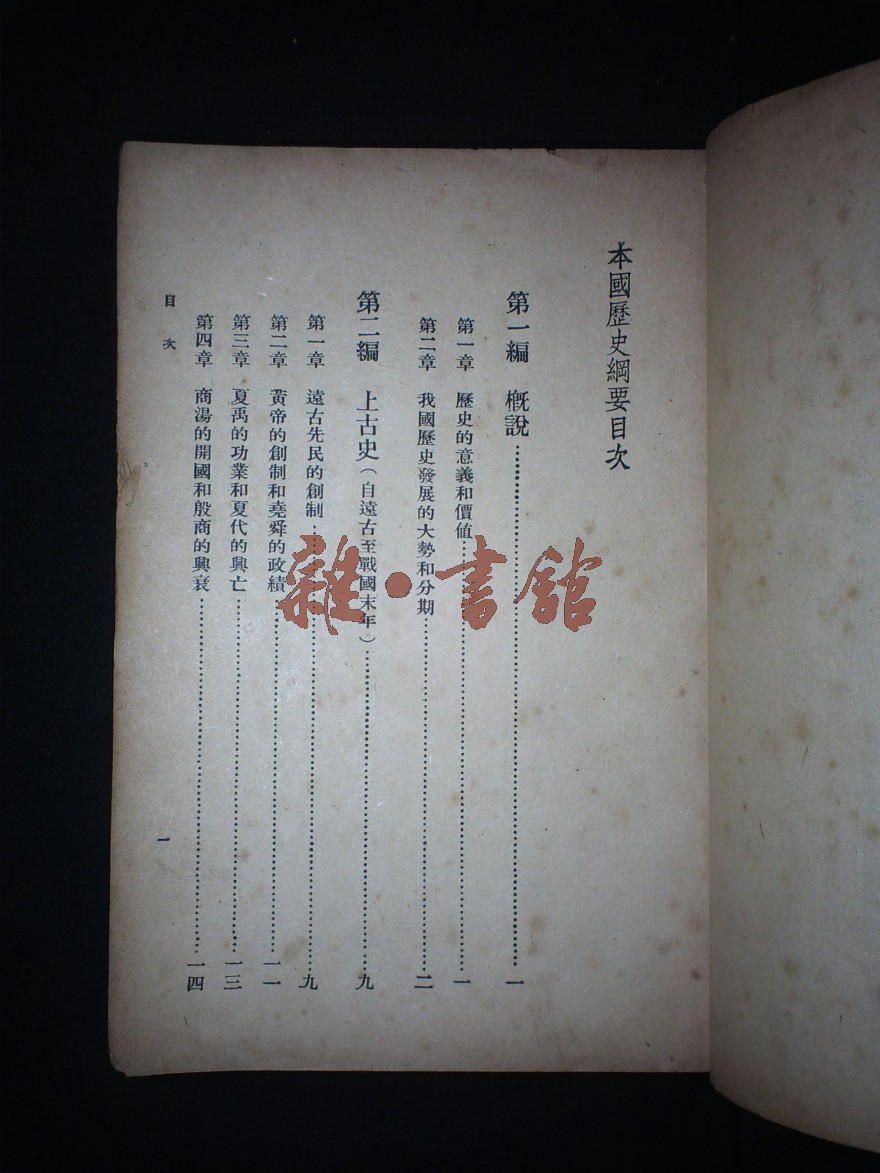 本國歷史綱要目次
第一編 概說……一
第一章 歷史的意義和價値……一
第二章 我國歷史發展的大勢和分期……二
第二編 上古史（自遠古至戰國末年）……九
第一章 遠古先民的創制……九
第二章 黃帝的創制和堯舜的政績……一一
第三章 夏禹的功業和夏代的興亡……一三
第四章 商湯的開國和殷商的興衰……一四
目次
一
雜·書館